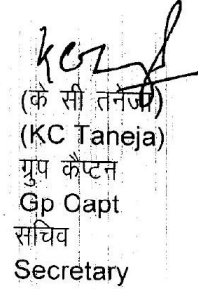 (के सी तनेजा)
(KC Taheja)
ग्रुप कैप्टन
Gp Capt
सचिव
Secretary